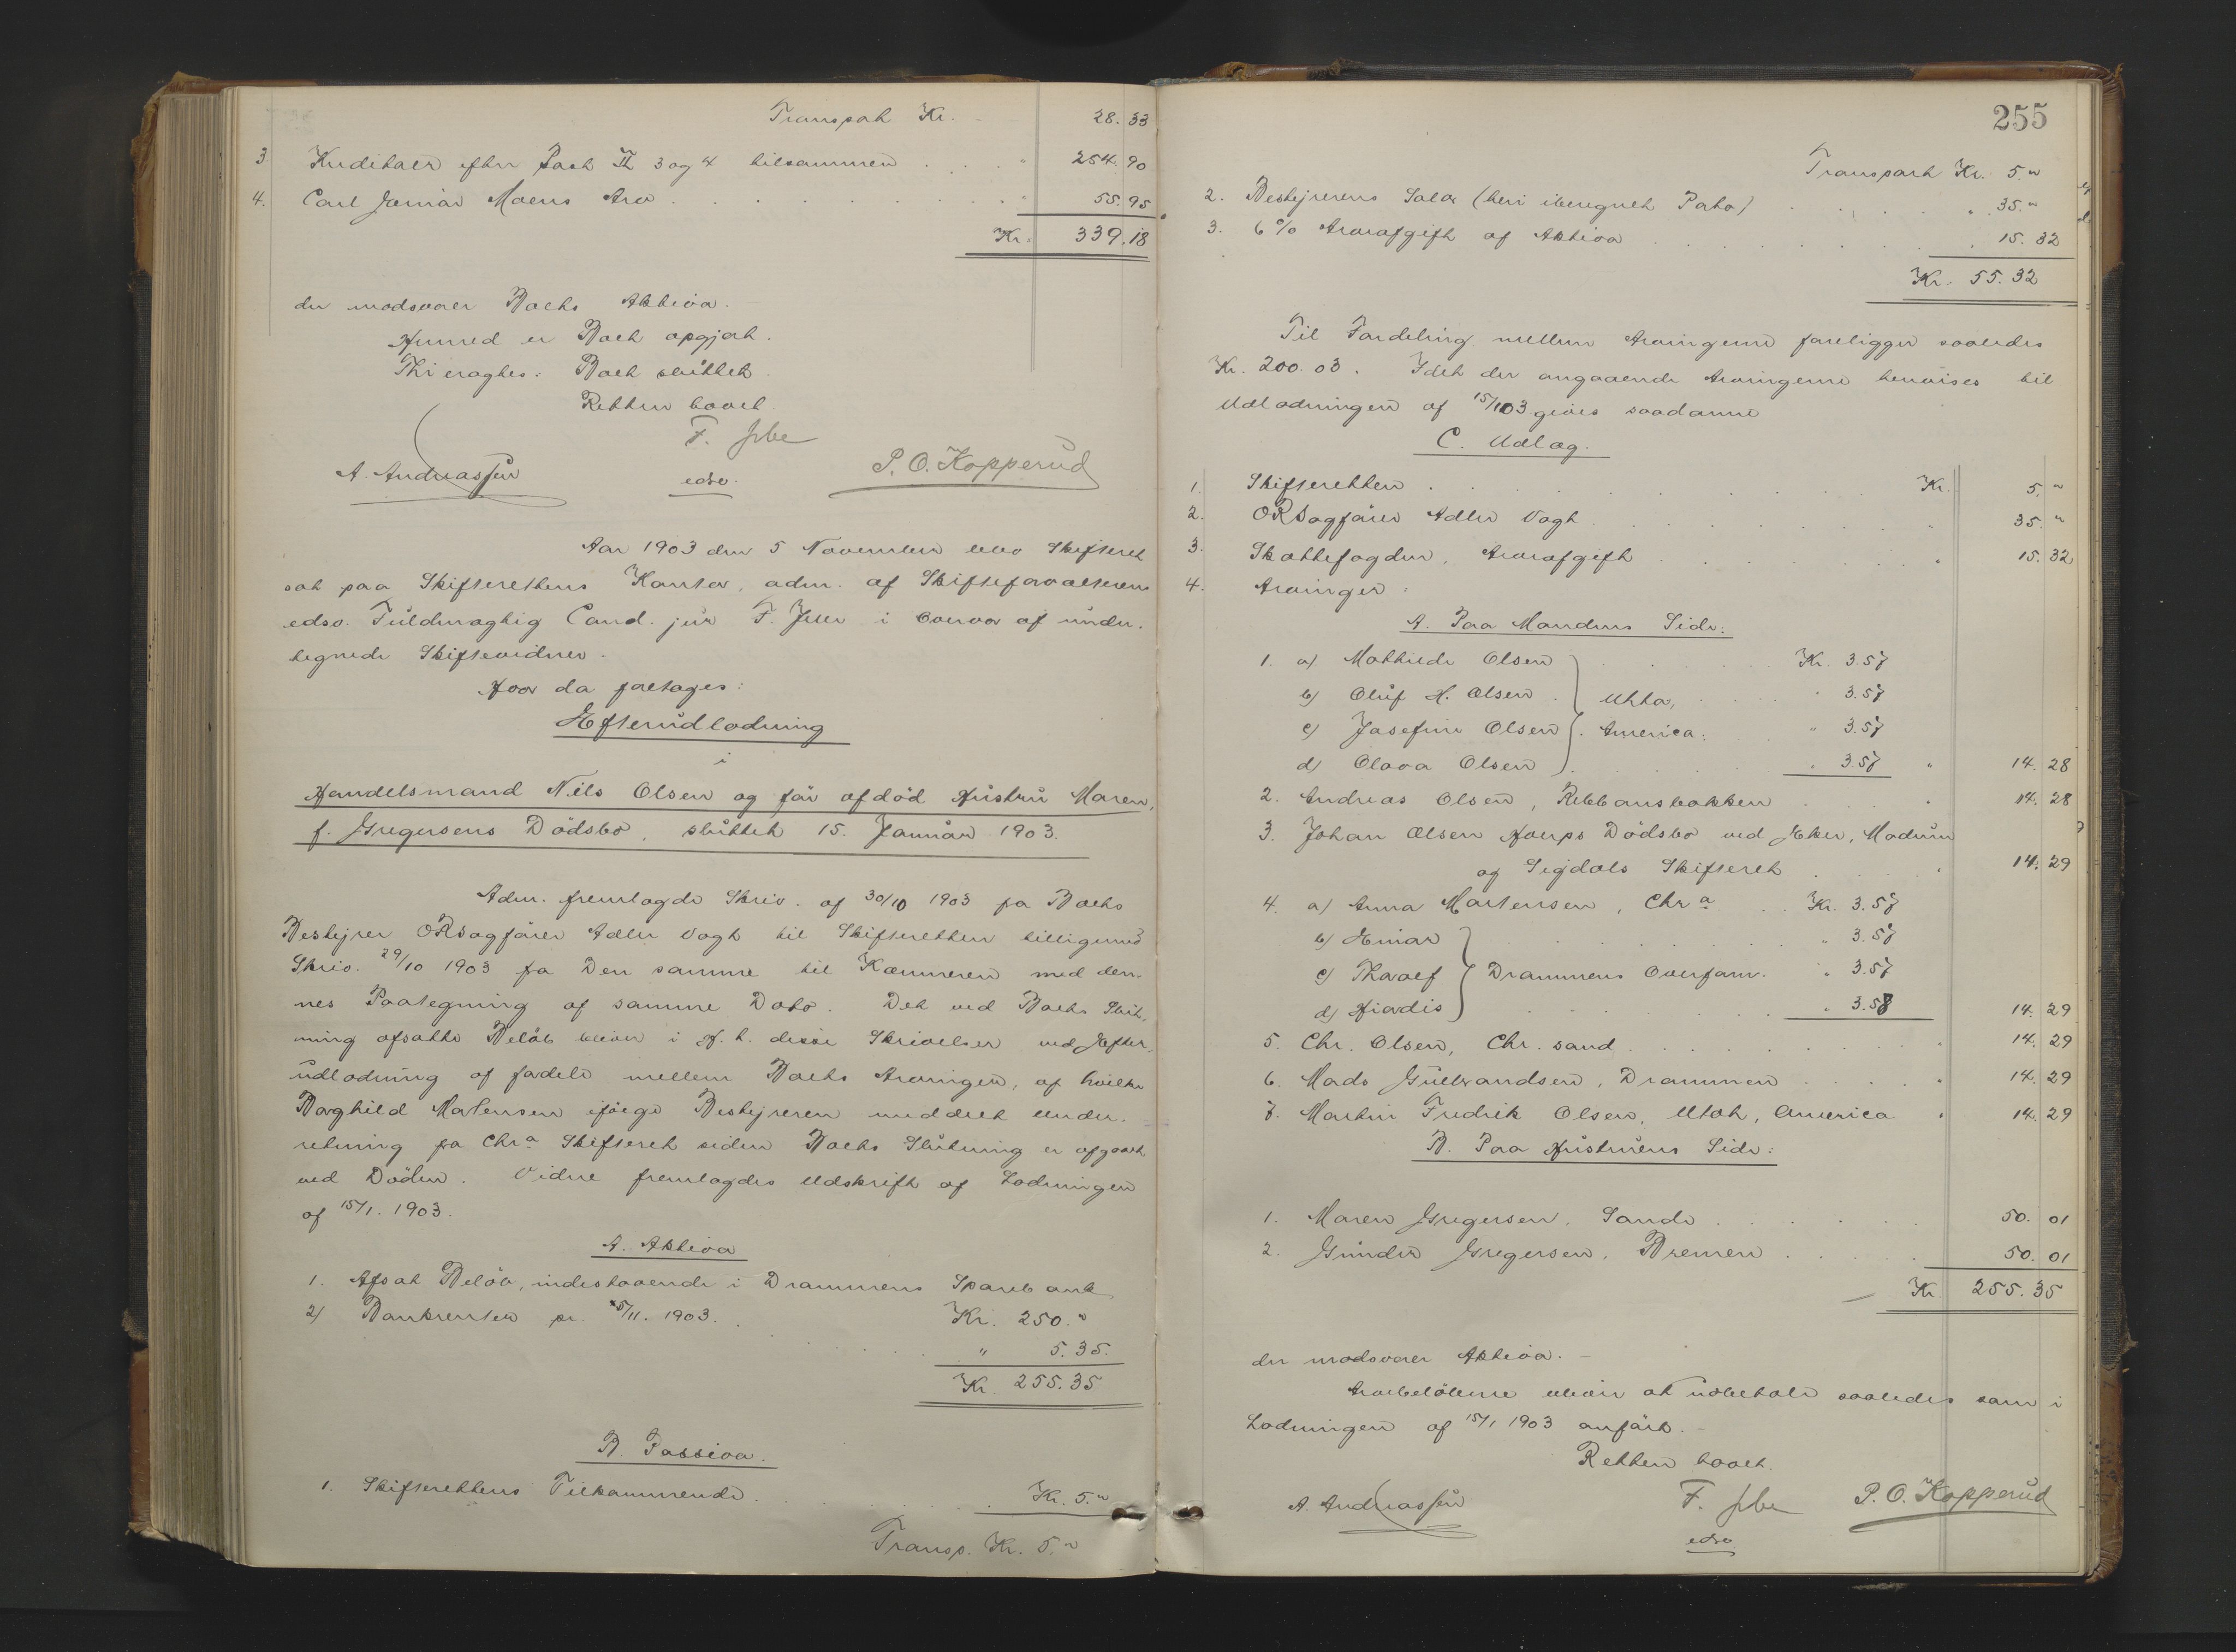 Transport Kr. 28.33
3. Kreditorer efter Post II 3 og 4 tilsammen " 254.90
4. Carl Januar Moens Arv " 55.95
Kr. 339.18
der modsvarer Boets Aktiva.
Hermed er Boet opgjort.
Thi eragtes: Boet sluttet.
Retten hævet.
F.
A. Andreassen edsv. P. O. Kopperud
Aar 1903 den 5 November blev Skifteret
sat paa Skifterettens Kontor, adm. af Skifteforvalterens
edsv. Fuldmægtig Cand. jur F. i Overvær af under-
tegnede Skiftevidner.
Hvor da foretages:
Efterudlodning
i
Handelsmand Nils Olsen og før afdød Hustru Maren,
f. Gregersens Dödsbo, sluttet 15. Januar 1903.
Adm. fremlagde Skriv. af 30/10 1903 fra Boets
Bestyrer ORSagfører Adler Vogt til Skifteretten tilligemed
Skriv. 29/10 1903 fra Den samme til Kæmneren med den-
nes Paategning af samme Dato. Det ved Boets Slut-
ning afsatte Beløb bliver i H. t. disse Skrivelser ved Efter-
udlodning at fordele mellem Boets Arvinger, af hvilke
Borghild Mortensen ifølge Bestyreren meddelt Under-
retning fra Chra Skifteret siden Boets Slutning er afgaaet
ved Døden. Videre fremlagdes Udskrift af Lodningen
af 15/1. 1903.
A. Aktiva
1. Afsat Beløb, indestaaende i Drammens Sparebank
2) Bankrenter pr. 5/11. 1903. Kr. 250."
" 5.35.
Kr. 255.35
B. Passiva.
1. Skifterettens Tilkommende Kr. 5."
Transp. Kr. 5."
255
Transport Kr. 5."
2. Bestyrerens Salær (heri iberegnet Porto) " 35."
3. 6% Arveafgift af Aktiva " 15.32
Kr. 55.32
Til Fordeling mellem Arvingerne foreligger saaledes
Kr. 200.03. Idet der angaaende Arvingerne henvises til
Udlodningen af 15/1 03 gives saadanne
C. Udlæg.
1. Skifteretten Kr. 5."
2. ORSagfører Adler Vogt " 35."
3. Skattefogden, Arveafgift " 15.32
4. Arvinger:
A. Paa Mandens Side:
1. a) Mathilde Olsen Kr. 3.57
b) Oluf H. Olsen Uhta, " 3.57
c) Josefine Olsen America. " 3.57
d) Olava Olsen " 3.57 " 14.28
2. Andreas Olsen, Rebbansbakken " 14.28
3. Johan Olsen Dødsbo ved Eker, Modum
og Sigdals Skifteret " 14.29
4. a) Anna Martensen, Chra Kr. 3.57
b) Einar " 3.57
c) Thoralf Drammens Overform. " 3.57
d) Hjørdis " 3.58 14.29
5. Chr. Olsen, Chr. sand " 14.29
6. Mads Gulbrandsen, Drammen " 14.29
7. Martin Fredrik Olsen, Utah, America " 14.29
B. Paa Hustruens Side:
1. Maren Gregersen, Sande 50.01
2. Gunder Gregersen, Bremen 50.01
Kr. 255.35
der modsvarer Aktiva. -
Arvebeløbene bliver at udbetale saaledes som i
Lodningen af 15/1 1903 anført. -
Retten hævet.
A. Andreassen F. P. O. Kopperud
edsv